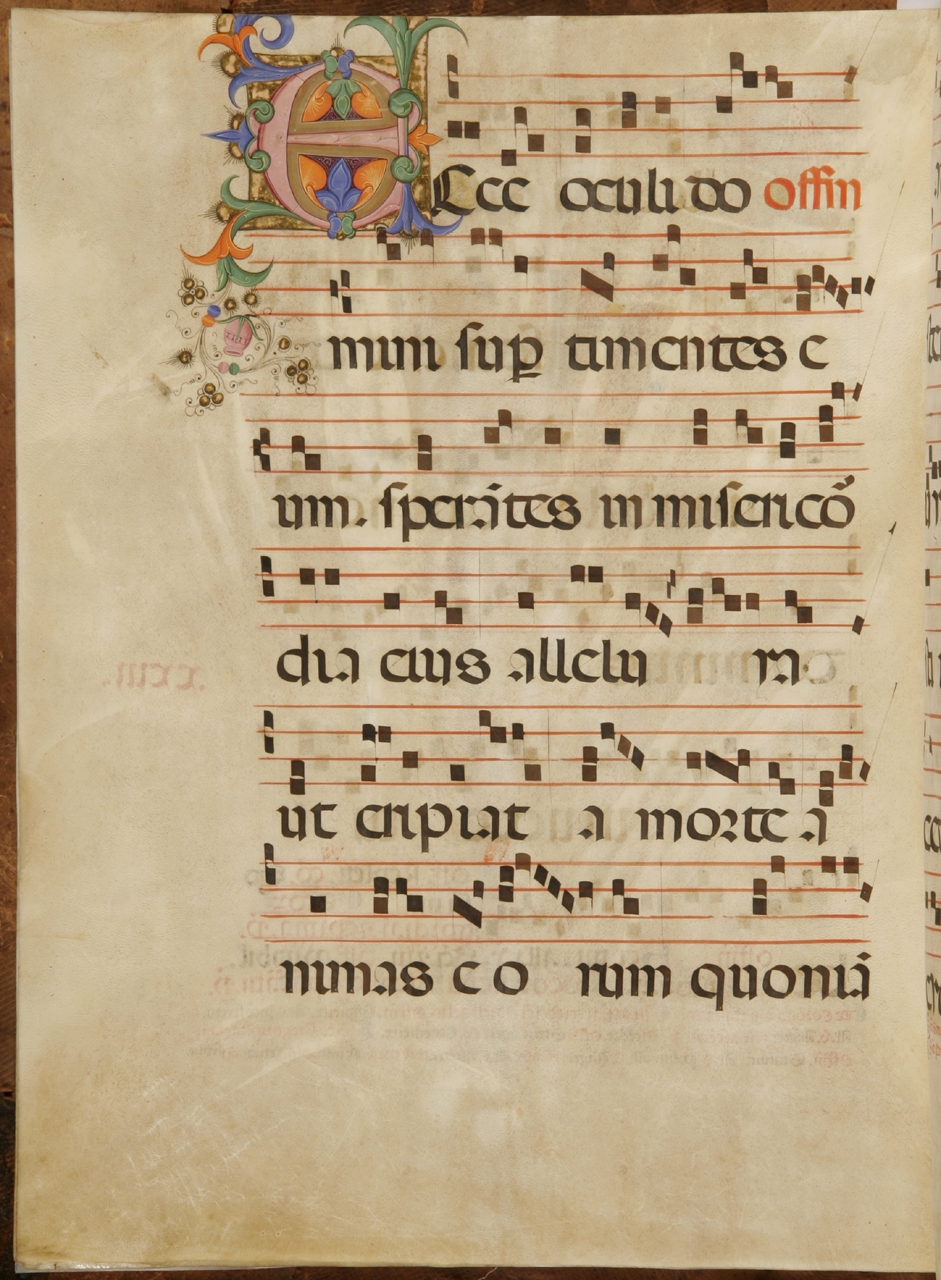 ECce oculi do offin
mini sup timentes e
um. sperātes in misericō
dia eius allelu ia.
ut eripiat a morte a
nimas e o rum quoniā